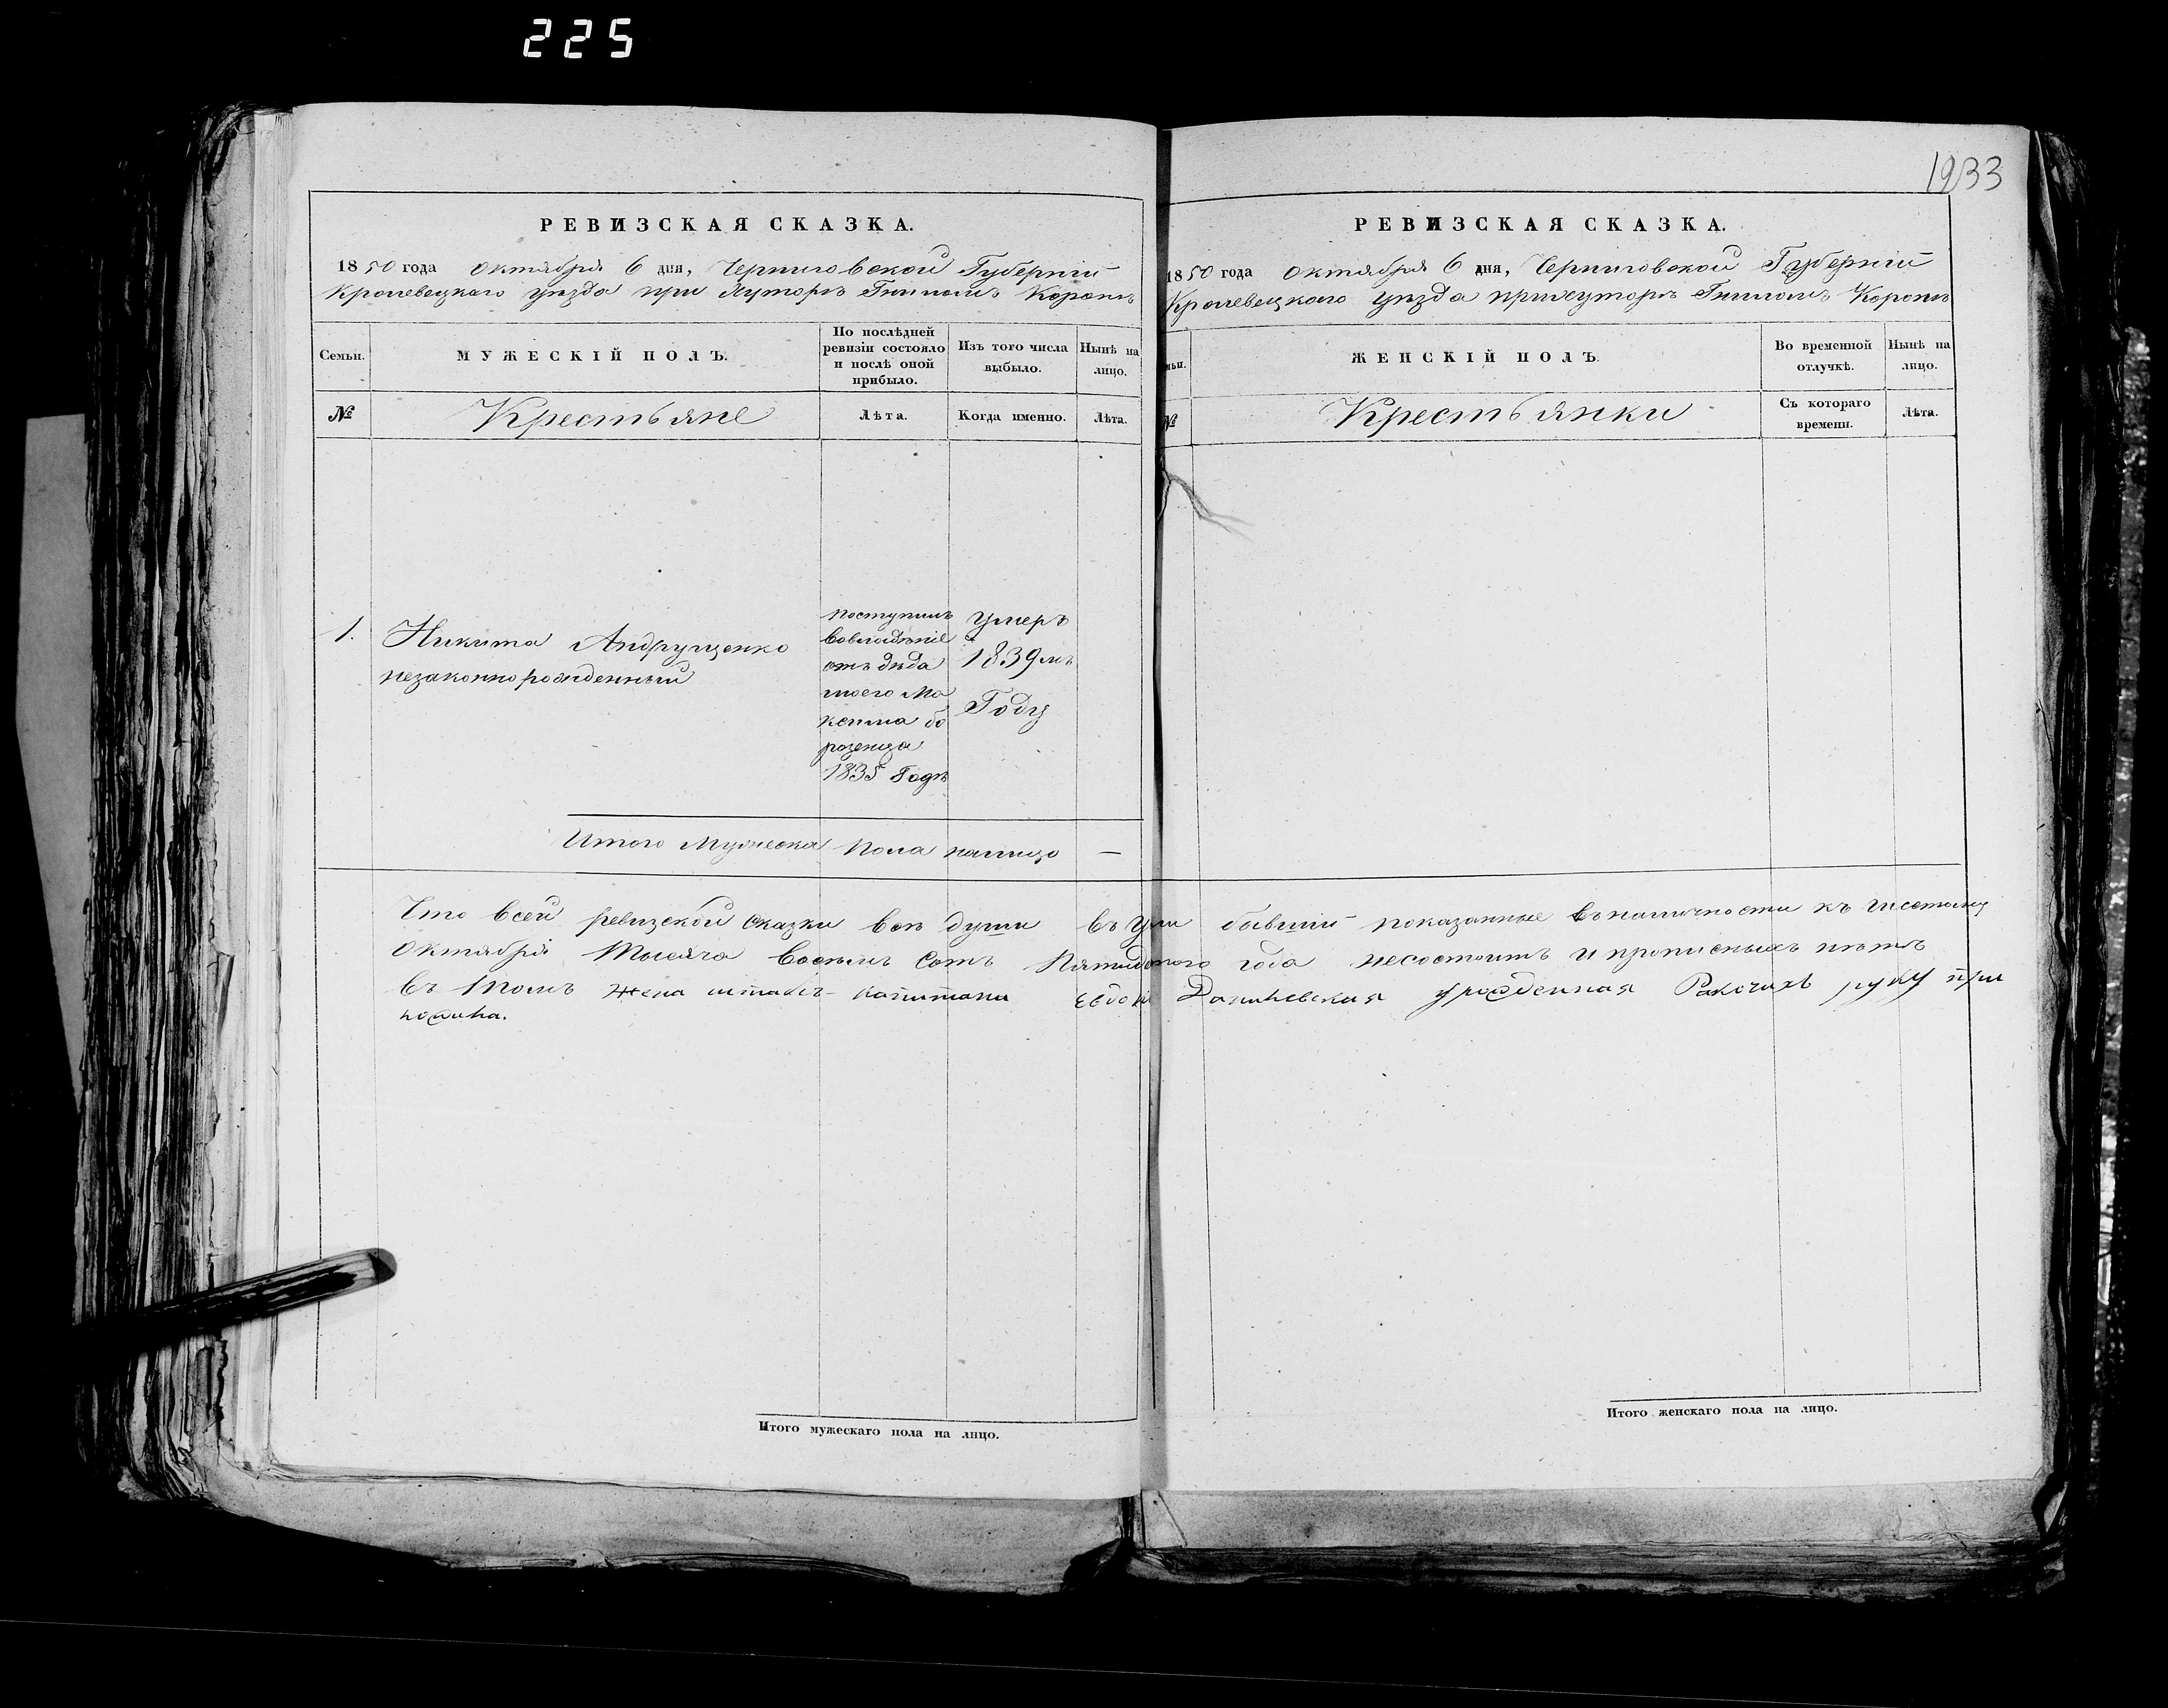 225
1933
РЕВИЗСКАЯ СКАЗКА.
1850 года октября 6 дня, Черниговской Губерніи
Кролевецкаго уѣзда при Хуторѣ Гниломъ Коропѣ
Семьи. МУЖЕСКІЙ ПОЛЪ. По послѣдней ревизіи состояло и послѣ оной прибыло. Изъ того числа выбыло. Нынѣ на лицо.
№ Крестьяне Лѣта. Когда именно. Лѣта.
1. Никита Андрущенко
незаконнорожденный
поступилъ
вовладѣніе
отъ дѣда
моего Ма
ксима Бо
розенца
1835 Годѣ
умеръ
1839мъ
Году
Итого Мужеска Пола налицо —
РЕВИЗСКАЯ СКАЗКА.
1850 года октября 6 дня, Черниговской Губерніи
Кролевецкаго уѣзда прихуторѣ Гниломъ Коропѣ
ЖЕНСКІЙ ПОЛЪ. Во временной отлучкѣ. Нынѣ на лицо.
№ Крестьянки Съ котораго времени. Лѣта.
Что всей ревизской сказки всѣ души бывшіи показанные вналичности къ шестому
октября Тысяча Восемь Сотъ Пятидесятого года несостоитъ и прописныхъ нѣтъ
въ томъ жена штабсъ-капитана Данилевская урожденная руку при
ложила.
Итого мужескаго пола на лицо.
Итого женскаго пола на лицо.